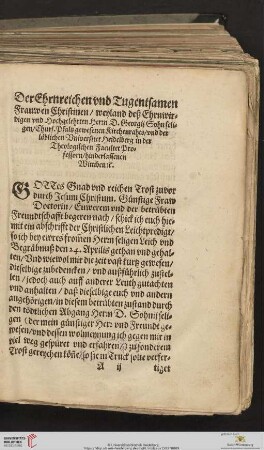 Der Ehrnreichen vnd Tugentsamen
Frauwen Christinen / weyland deß Ehrnwir-
digen vnd Hochgelehrten Herrn D. Georgii Sohn seli-
gen / Churf. Pfaltz gewesenen Kirchenrahts / vnd der
löblichen Vniversitet Heidelberg in der
Theologischen Facultet Pro-
fessorn / hinderlassenen
Wittwen / ꝛc.
GOTTes Gnad vnd reichen Trost zuvor
durch Jesum Christum. Günstige Fraw
Doctorin / Ewerem vnd der betrübten
Freundtschafft begeren nach / schick ich euch hie-
mit ein abschrifft der Christlichen Leichtpredigt /
so ich bey ewres frommen Herrn seligen Leich vnd
Begräbnuß den 24. Aprilis gethan vnd gehal-
ten / Vnd wiewol mir die zeit vast kurtz gewesen /
dieselbige zubedencken / vnd außführlich zustel-
len / jedoch auch auff anderer Leuth gutachten
vnd anhalten / daß dieselbige euch vnd andern
angehörigen / in diesem betrübten zustand durch
den tödtlichen Abgang Herrn D. Sohns seli-
gen (der mein günstiger Herr vnd Freundt ge-
wesen / vnd dessen wolmeynung ich gegen mir in
viel weg gespüret vnd erfahren /) zu sonderem
Trost gereychen köñe / so sie in Truck solte verfer-
A ij
tiget